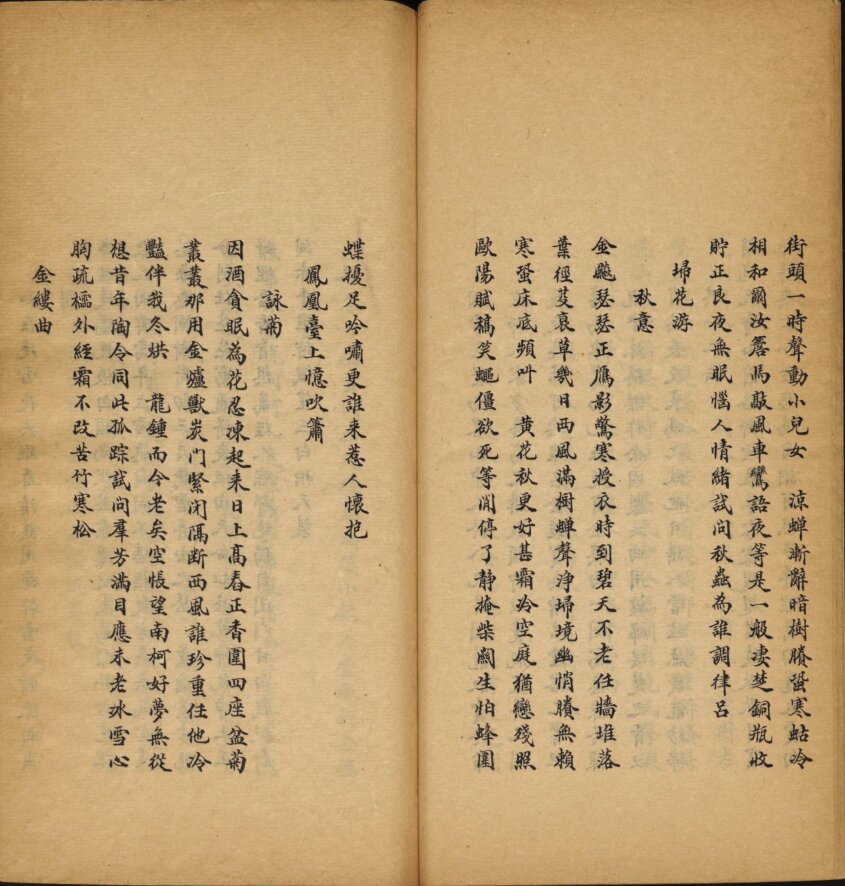 街頭一時聲動小兒女　涼蟬漸辭暗樹賸蛩寒蛄冷
相和爾汝簷馬敲風車鸞語夜等是一般凄楚銅瓶收
貯正良夜無眠惱人情緒試問秋蟲為誰調律呂
埽花游
秋意
金飈瑟瑟正鴈影驚寒授衣時到碧天不老任牆堆落
葉徑芟哀草幾日西風滿樹蟬聲淨埽境幽悄賸無賴
寒蛩床底頻叫　黃花秋更好甚霜冷空庭猶戀殘照
歐陽賦稿笑蠅僵欲死等閒停了靜掩柴關生怕蜂圍
蝶擾足吟嘯更誰來惹人懷抱
鳳凰臺上憶吹簫
詠菊
因酒貪眠為花忍凍起來日上高舂正香圍四座盆菊
叢叢那用金爐獸炭門緊閉隔斷西風誰珍重任他冷
豔伴我冬烘　龍鍾而今老矣空悵望南柯好夢無從
想昔年陶令同此孤踪試問羣芳滿目應未老冰雪心
胸疏櫺外經霜不改苦竹寒松
金縷曲